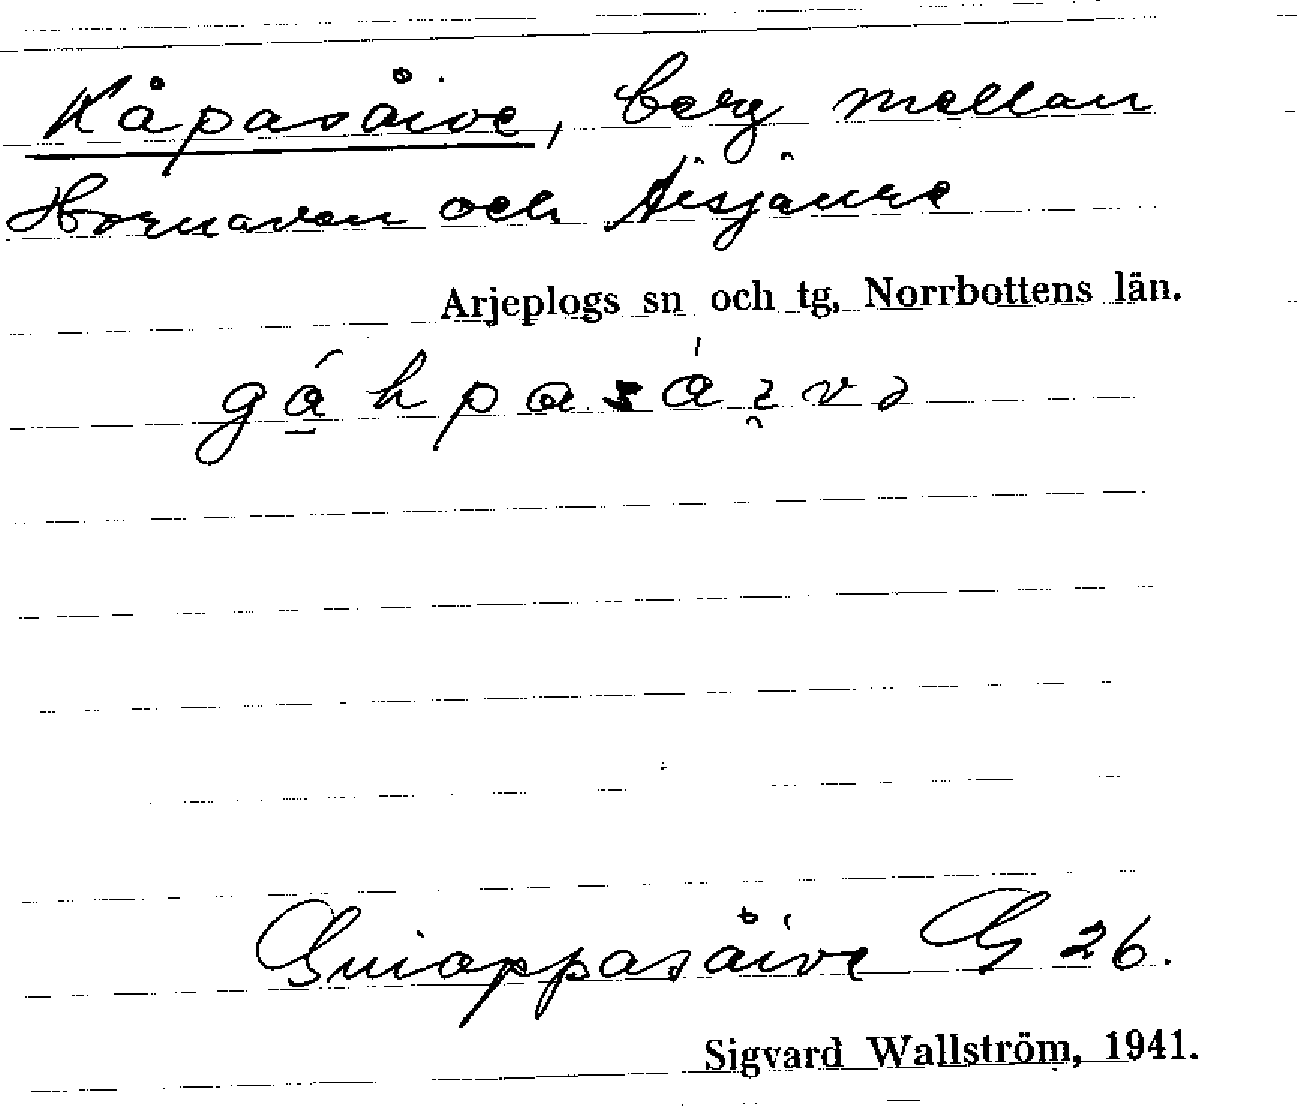 Kåpasåive, berg mellan
Hornavan och Aisjaure
Arjeplogs sn och tg, Norrbottens län.
gáhpasáivə
Guioppasåive G 26.
Sigvard Wallström, 1941.